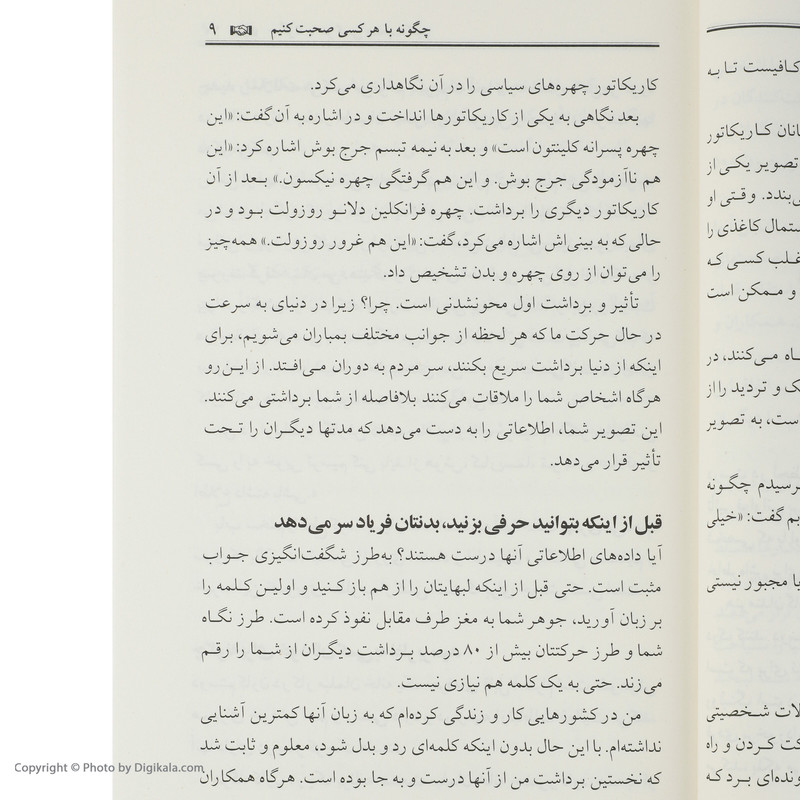 چگونه با هر کسی صحبت کنیم ۹
کاریکاتور چهره‌های سیاسی را در آن نگاهداری می‌کرد.
بعد نگاهی به یکی از کاریکاتورها انداخت و در اشاره به آن گفت: «این
چهره پسرانه کلینتون است» و بعد به نیمه تبسم جرج بوش اشاره کرد: «این
هم ناآزمودگی جرج بوش. و این هم گرفتگی چهره نیکسون.» بعد از آن
کاریکاتور دیگری را برداشت. چهره فرانکلین دلانو روزولت بود و در
حالی که به بینی‌اش اشاره می‌کرد، گفت: «این هم غرور روزولت.» همه‌چیز
را می‌توان از روی چهره و بدن تشخیص داد.
تأثیر و برداشت اول محونشدنی است. چرا؟ زیرا در دنیای به سرعت
در حال حرکت ما که هر لحظه از جوانب مختلف بمباران می‌شویم، برای
اینکه از دنیا برداشت سریع بکنند، سر مردم به دوران می‌افتد. از این‌رو
هرگاه اشخاص شما را ملاقات می‌کنند بلافاصله از شما برداشتی می‌کنند.
این تصویر شما، اطلاعاتی را به دست می‌دهد که مدتها دیگران را تحت
تأثیر قرار می‌دهد.
قبل از اینکه بتوانید حرفی بزنید، بدنتان فریاد سر می‌دهد
آیا داده‌های اطلاعاتی آنها درست هستند؟ به‌طرز شگفت‌انگیزی جواب
مثبت است. حتی قبل از اینکه لبهایتان را از هم باز کنید و اولین کلمه را
بر زبان آورید، جوهر شما به مغز طرف مقابل نفوذ کرده است. طرز نگاه
شما و طرز حرکتتان بیش از ۸۰ درصد برداشت دیگران از شما را رقم
می‌زند. حتی به یک کلمه هم نیازی نیست.
من در کشورهایی کار و زندگی کرده‌ام که به زبان آنها کمترین آشنایی
نداشته‌ام. با این حال بدون اینکه کلمه‌ای رد و بدل شود، معلوم و ثابت شد
که نخستین برداشت من از آنها درست و به جا بوده است. هرگاه همکاران
کافیست تا به
کاریکاتور
تصویر یکی از
وقتی او
ستمال کاغذی را
غلب کسی که
و ممکن است
می‌کنند، در
و تردید را از
است، به تصویر
رسیدم چگونه
گفت: «خیلی
مجبور نیستی
شخصیتی
کردن و راه
برد که
Copyright © Photo by Digikala.com